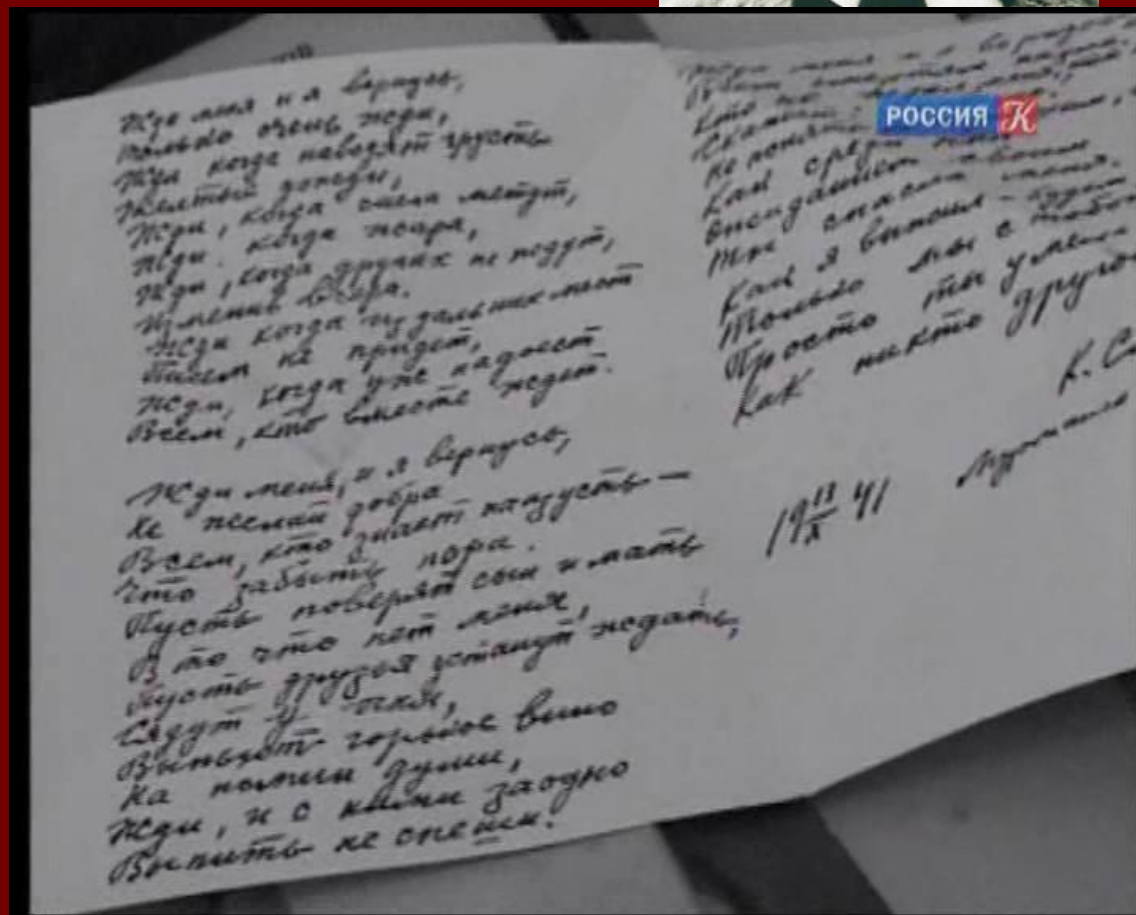 Жди меня и я вернусь,
только очень жди,
Жди когда наводят грусть
Желтые дожди,
Жди, когда снега метут,
Жди. когда жара,
Жди, когда других не ждут,
Изменив вчера.
Жди когда из дальних мест
Писем не придет,
Жди, когда уже надоест
Всем, кто вместе ждет.
Жди меня, и я вернусь,
Не желай добра
Всем, кто знает наизусть —
Что забыть пора.
Пусть поверят сын и мать
В то что нет меня,
Пусть друзья устанут ждать,
Сядут у огня,
Выпьют горькое вино
На помин души,
Жди, и с ними заодно
Выпить не спеши.
Жди меня и я
Кто не
Не понять
Как среди
Ожиданием своим
Ты спасла меня.
Как я выжил - будем
Только мы с тобой
Просто ты умела
Как никто другой
К. Си
19 13/X 41
РОССИЯ К